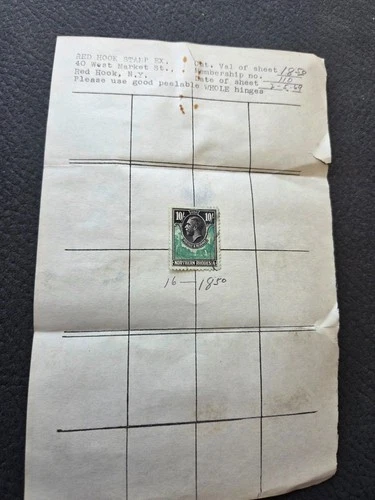 RED HOOK STAMP EX. , Cat. Val of sheet 18.50
40 West Market St., . Membership no. 110
Red Hook, N.Y. Date of sheet 2-5-69
Please use good peelable WHOLE hinges
10/- 10/-
NORTHERN RHODESIA
16 — 18 50